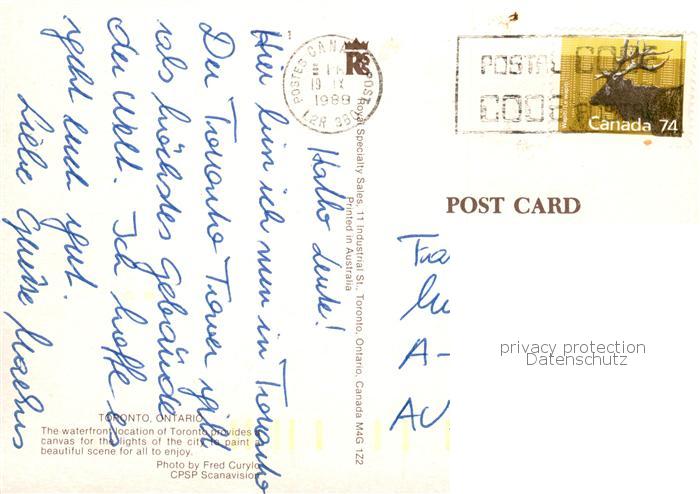 Hallo Leute!
Hier bin ich nun in Toronto
Der Toronto Tower gilt
als höchstes Gebäude
der Welt. Ich hoffe es
geht euch gut.
Liebe Grüsse Markus
POSTES CANADA POST
19 IX
1989
POSTAL CODE
CODE POSTAL
Canada 74
POST CARD
Fra
A-
AU
privacy protection
Datenschutz
R
Royal Specialty Sales, 11 Industrial St., Toronto, Ontario, Canada M4G 1Z2
Printed in Australia
TORONTO, ONTARIO
The waterfront location of Toronto provides a
canvas for the lights of the city to paint a
beautiful scene for all to enjoy.
Photo by Fred Curylo
CPSP Scanavision